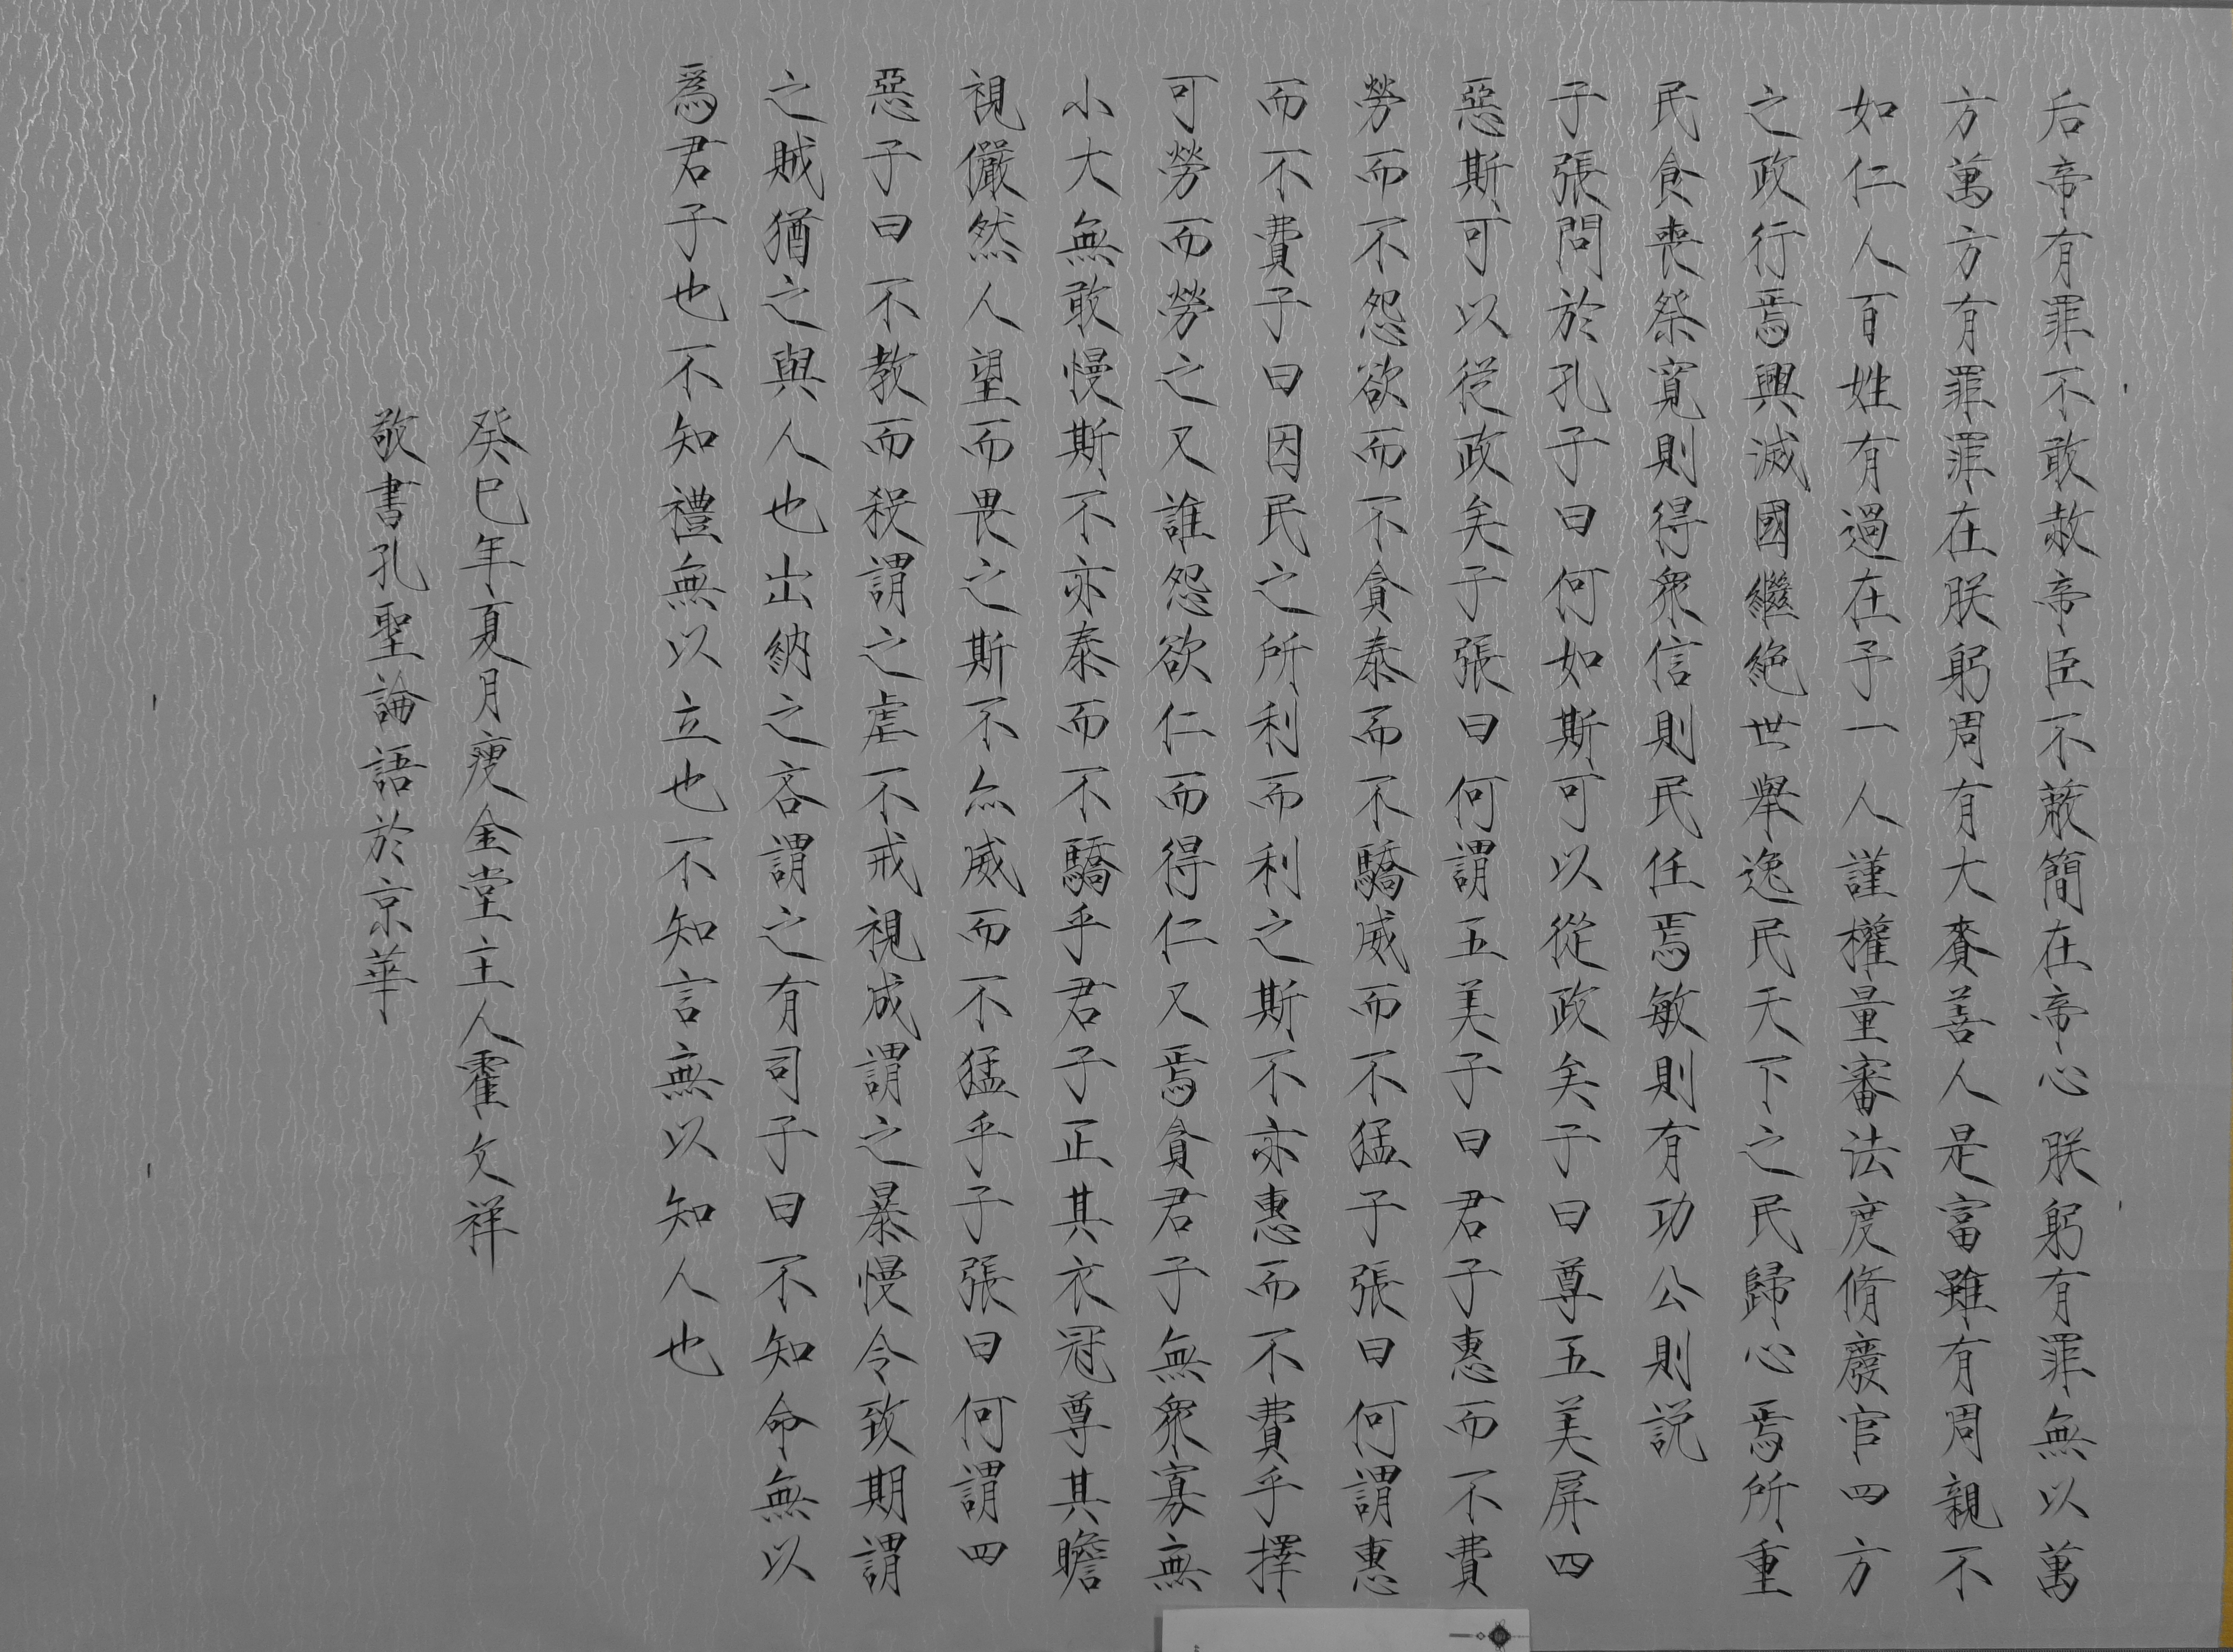 后帝有罪不敢赦帝臣不蔽簡在帝心朕躬有罪無以萬
方萬方有罪罪在朕躬周有大賚善人是富雖有周親不
如仁人百姓有過在予一人謹權量審法度脩廢官四方
之政行焉興滅國繼絕世舉逸民天下之民歸心焉所重
民食喪祭寬則得眾信則民任焉敏則有功公則説
子張問於孔子曰何如斯可以從政矣子曰尊五美屏四
惡斯可以從政矣子張曰何謂五美子曰君子惠而不費
勞而不怨欲而不貪泰而不驕威而不猛子張曰何謂惠
而不費子曰因民之所利而利之斯不亦惠而不費乎擇
可勞而勞之又誰怨欲仁而得仁又焉貪君子無眾寡無
小大無敢慢斯不亦泰而不驕乎君子正其衣冠尊其瞻
視儼然人望而畏之斯不亦威而不猛乎子張曰何謂四
惡子曰不教而殺謂之虐不戒視成謂之暴慢令致期謂
之賊猶之與人也出納之吝謂之有司子曰不知命無以
爲君子也不知禮無以立也不知言無以知人也
癸巳年夏月瘦金堂主人霍文祥
敬書孔聖論語於京華